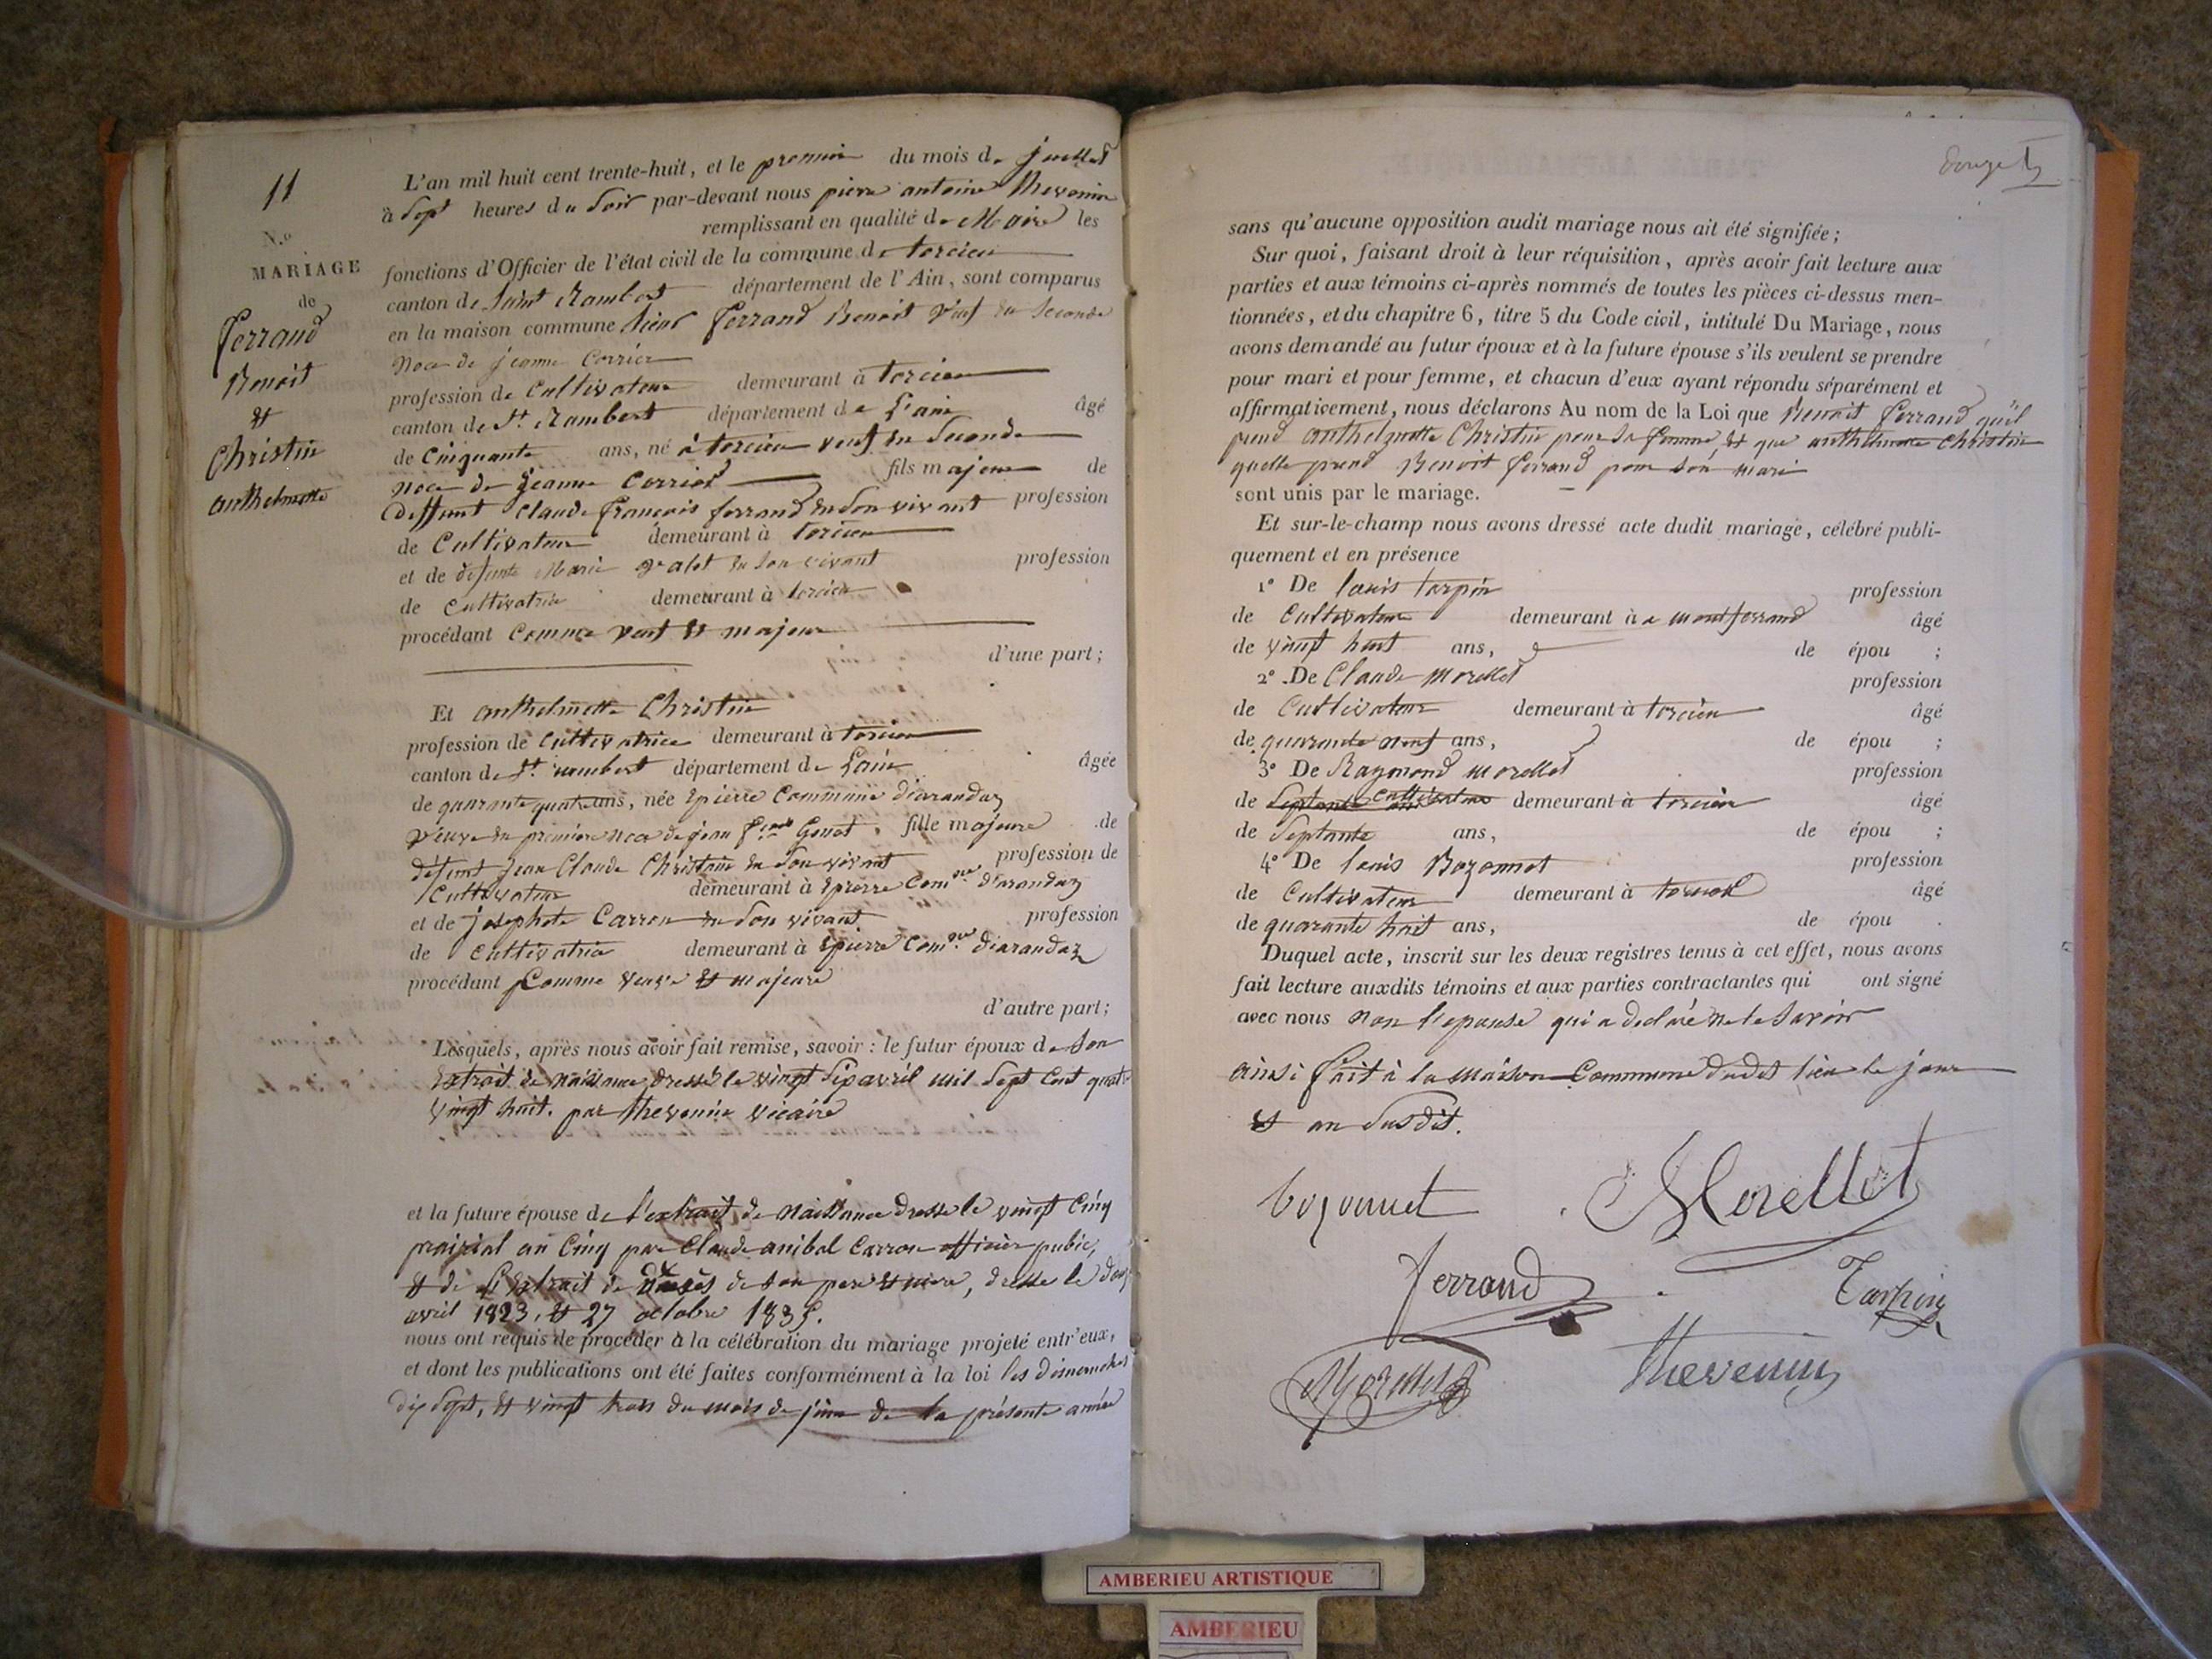 11
N.º
MARIAGE
de
Ferrand
Benoit
&
Christin
anthelmette
L'an mil huit cent trente-huit, et le premier du mois de juillet
à Sept heures du Soir par-devant nous pierre antoine thevenin
remplissant en qualité de Maire les
fonctions d'Officier de l'état civil de la commune de torcieu
canton de Saint Rambert département de l'Ain, sont comparus
en la maison commune Sieur Ferrand Benoit veuf en Seconde
Noce de jeanne Corrier
profession de Cultivateur demeurant à torcieu
canton de St. Rambert département de L'ain âgé
de Cinquante ans, né à torcieu veuf en Seconde
noce de Jeanne Corrier fils majeur de
deffunt Claude François ferrand en Son vivant profession
de Cultivateur demeurant à torcieu
et de defunte Marie en Son vivant profession
de Cultivatrice demeurant à torcieu
procédant Comme veuf & majeur
d'une part;
Et anthelmette Christin
profession de Cultivatrice demeurant à torcieu
canton de St. rambert département de L'ain âgée
de quarante quatre ans, née Epierre Commune d'arandaz
Veuve en première noce de jean Gonet, fille majeure de
défunt Jean Claude Christin en Son vivant profession de
Cultivateur demeurant à Epierre Comne d'arandaz
et de josephete Carron en Son vivant profession
de Cultivatrice demeurant à Epierre Comne d'arandaz
procédant Comme veuve & majeure
d'autre part;
Lesquels, après nous avoir fait remise, savoir : le futur époux de Son
Extrait de naissance dressé le vingt Six avril mil Sept Cent quatre
vingt huit. par thevenin vicaire
et la future épouse de l'extrait de naissance dressé le vingt Cinq
prairial an Cinq par Claude anibal Carron officier public,
& de L'Extrait de décès de Son pere & mere, dressé le
avril 1823, & 27 octobre 1835.
nous ont requis de procéder à la célébration du mariage projeté entr'eux,
et dont les publications ont été faites conformément à la loi les dimanches
dix Sept, & vingt trois du mois de juin de la présente année
sans qu'aucune opposition audit mariage nous ait été signifiée;
Sur quoi, faisant droit à leur réquisition, après avoir fait lecture aux
parties et aux témoins ci-après nommés de toutes les pièces ci-dessus men-
tionnées, et du chapitre 6, titre 5 du Code civil, intitulé Du Mariage, nous
avons demandé au futur époux et à la future épouse s'ils veulent se prendre
pour mari et pour femme, et chacun d'eux ayant répondu séparément et
affirmativement, nous déclarons Au nom de la Loi que Benoit Ferrand qu'il
prend anthelmette Christin pour Sa femme, & que anthelmette Christin
quelle prend Benoit Ferrand pour Son mari
sont unis par le mariage.
Et sur-le-champ nous avons dressé acte dudit mariage, célébré publi-
quement et en présence
1º De louis tarpin profession
de Cultivateur demeurant à a montferrand âgé
de vingt huit ans, de épou ;
2º De Claude Morellet profession
de Cultivateur demeurant à torcieu âgé
de quarante neuf ans, de épou ;
3º De Raymond Morellet profession
de Septante ans cultivateur demeurant à torcieu âgé
de Septante ans, de épou ;
4º De louis Bozonnet profession
de Cultivateur demeurant à âgé
de quarante huit ans, de épou .
Duquel acte, inscrit sur les deux registres tenus à cet effet, nous avons
fait lecture auxdits témoins et aux parties contractantes qui ont signé
avec nous non l'epouse qui a déclaré ne le Savoir
ainsi fait à la maison Commune dudit lieu le jour
& an Susdit.
bozonnet
Morellet
Ferrand
Tarpin
Morellet
thevenin
AMBERIEU ARTISTIQUE
AMBERIEU